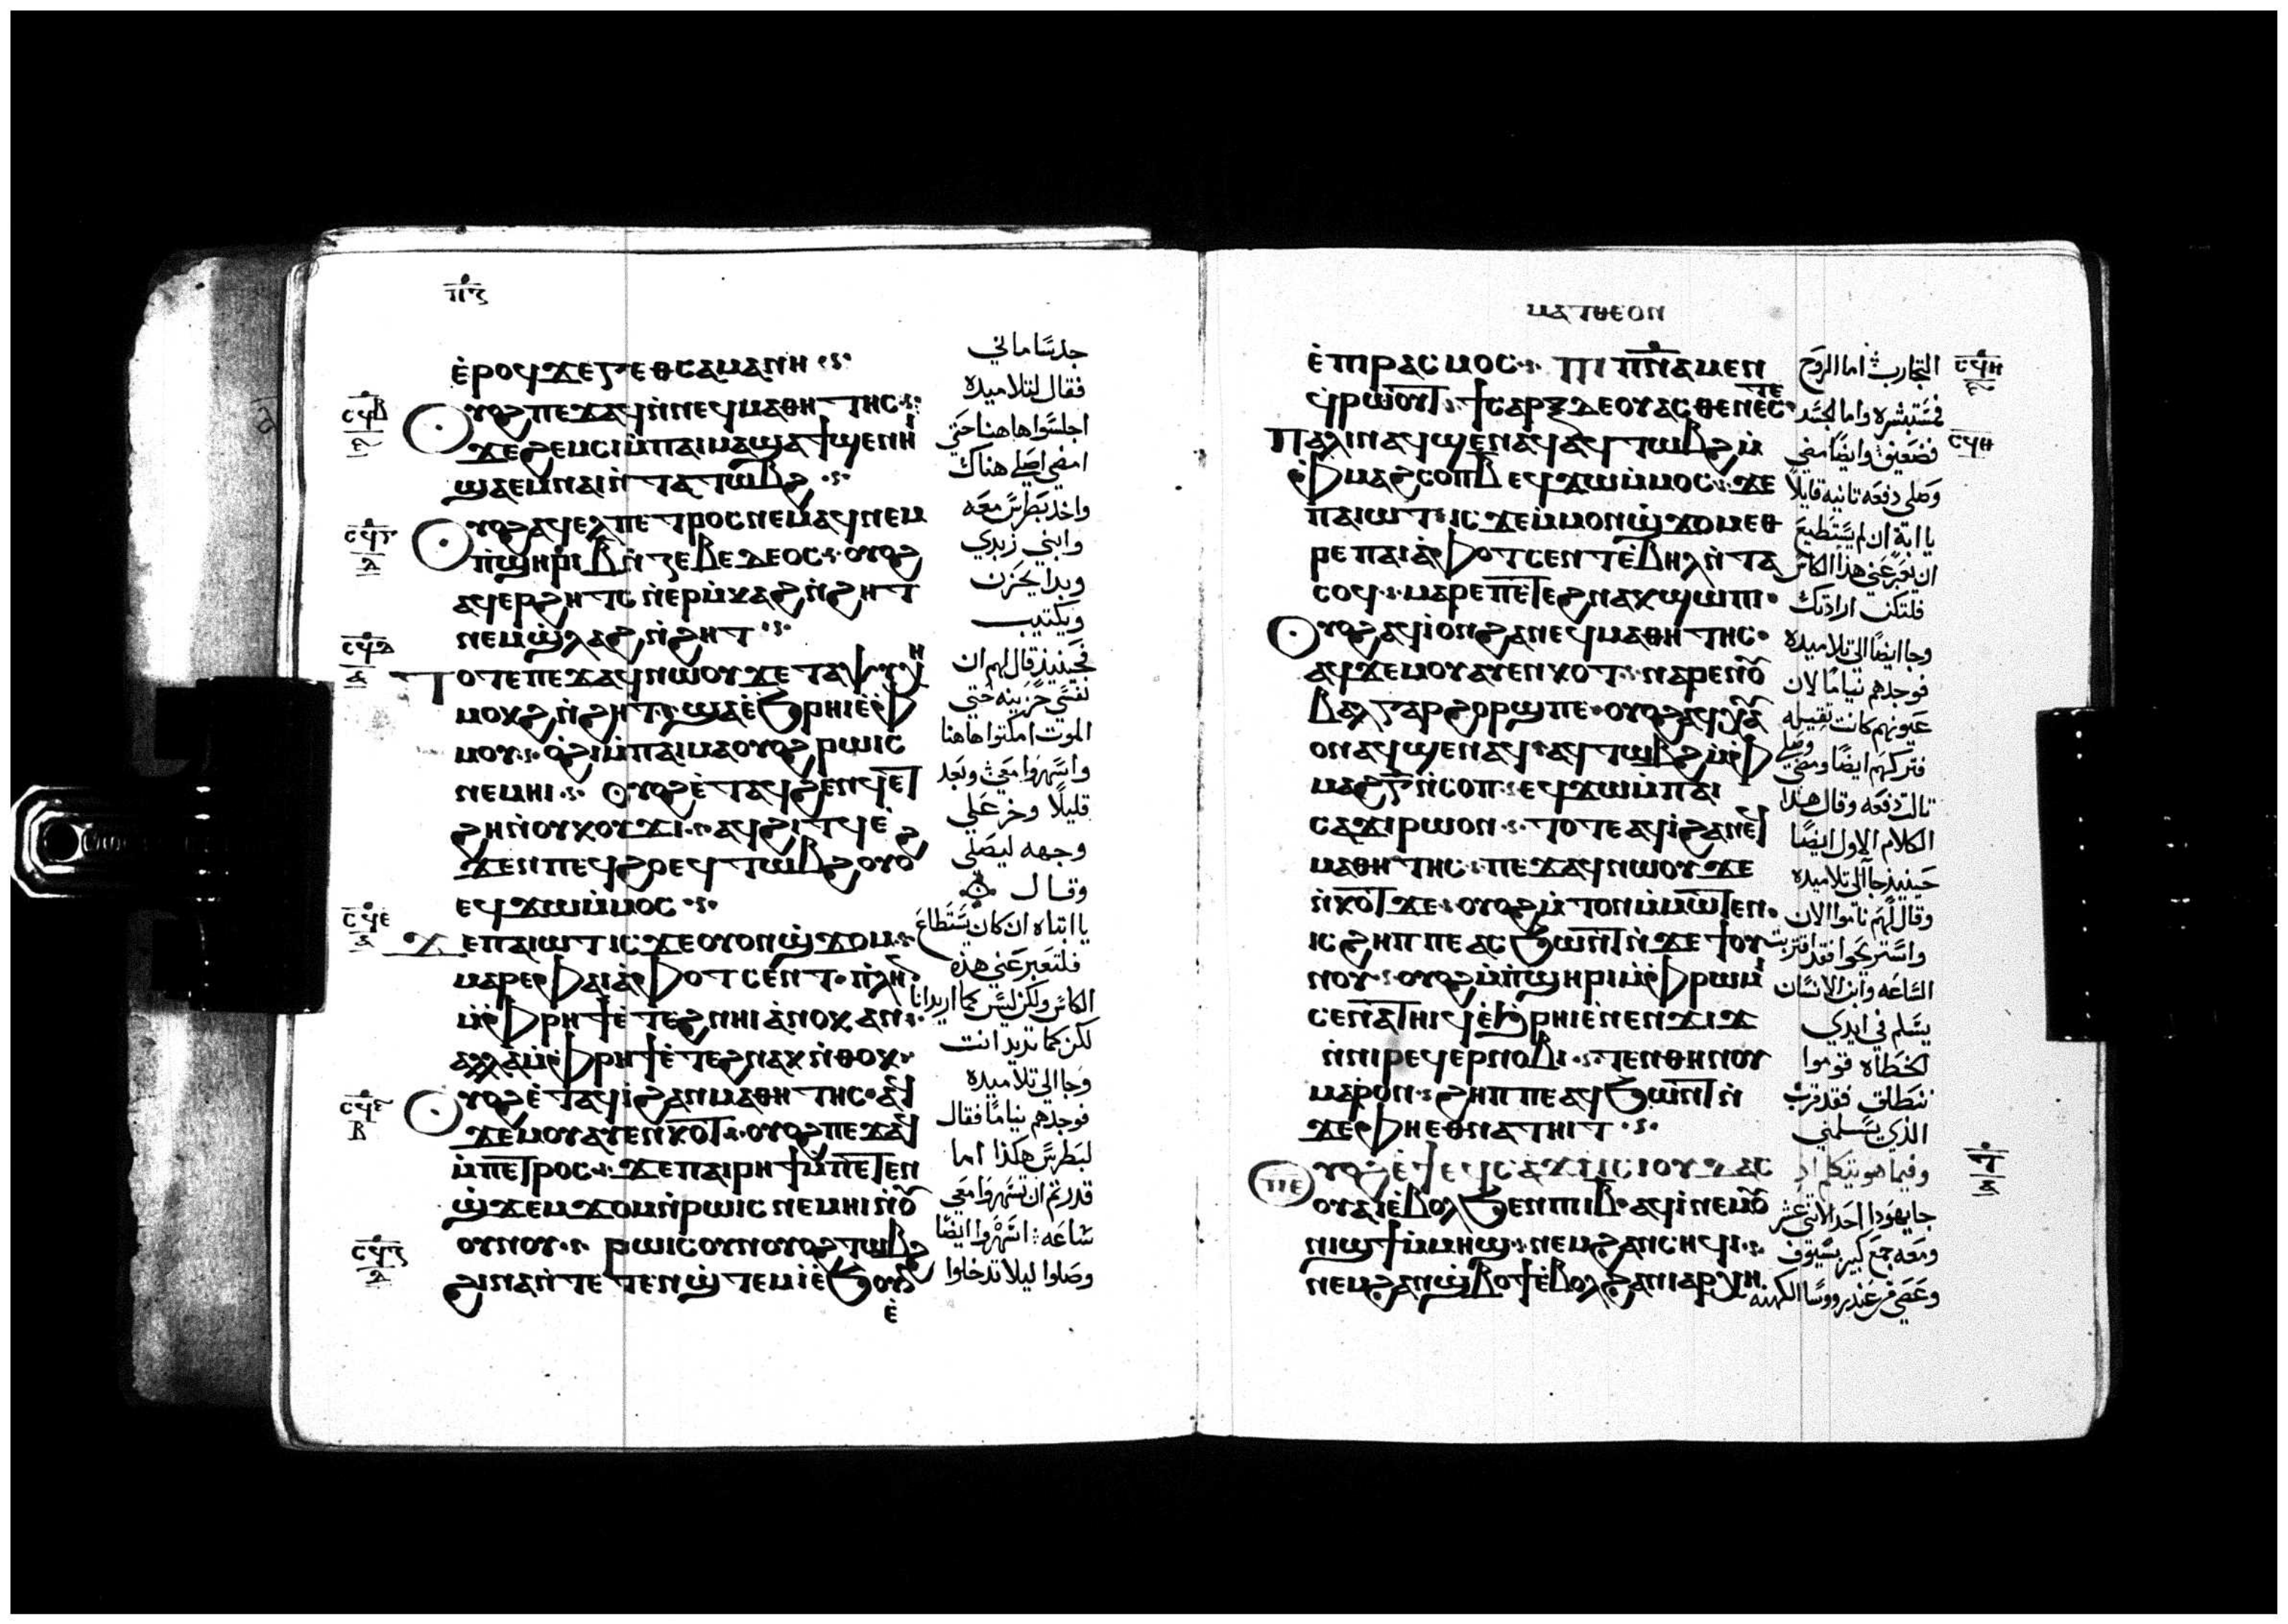 ⲡⲍ
ⲉ̀ⲣⲟϥϫⲉⲅⲉⲑⲥⲁⲙⲁⲛⲏ
ⲟⲩⲟϩⲡⲉϫⲁϥⲛ̀ⲛⲉϥⲙⲁⲑⲏⲧⲏⲥ
ϫⲉϩⲉⲙⲥⲓⲙ̀ⲡⲁⲓⲙⲁϣⲁϯϣⲉⲛⲏⲓ
ϣⲁⲉⲙⲛⲁⲓⲛ̀ⲧⲁⲧⲱⲃϩ
ⲟⲩⲟϩⲁϥⲉⲗⲡⲉⲧⲣⲟⲥⲛⲉⲙⲁϥⲛⲉⲙ
ⲡ̀ϣⲏⲣⲓⲃ̅ⲛ̀ⲍⲉⲃⲉⲇⲉⲟⲥ ⲟⲩⲟϩ
ⲁϥⲉⲣϩⲏⲧⲥⲛ̀ⲉⲣⲙ̀ⲕⲁϩⲛ̀ϩⲏⲧ
ⲛⲉⲙϣ̀ⲗⲁϩⲛ̀ϩⲏⲧ
ⲧⲟⲧⲉⲡⲉϫⲁϥⲛⲱⲟⲩϫⲉⲧⲁⲯⲩⲭⲏ
ⲙⲟⲕϩⲛ̀ϩⲏⲧ ϣⲁⲉ̀ϧⲣⲏⲓⲉ̀ⲫ
ⲙⲟⲩ ⲟ̀ϩⲓⲙ̀ⲡⲁⲓⲙⲁⲟⲩⲟϩⲣⲱⲓⲥ
ⲛⲉⲙⲏⲓ ⲟⲩⲟϩⲉ̀ⲧⲁϥϩⲉⲛϥⲉⲧ
ϩⲏⲛ̀ⲟⲩⲕⲟⲩϫⲓ ⲁϥϩⲓⲧϥⲉ̀
ϫⲉⲛⲡⲉϥϩⲟⲉϥⲧⲱⲃϩⲟⲩⲟϩ
ⲉϥϫⲱⲙ̀ⲙⲟⲥ
ϫⲉⲡⲁⲓⲱⲧⲓⲥϫⲉⲟⲩⲟⲛϣ̀ϫⲟⲙ
ⲙⲁⲣⲉⲫⲁⲓⲁ̀ⲫⲟⲧⲥⲉⲛⲧ ⲡ̀ⲗⲏⲛ
ⲙ̀ⲫⲣⲏϯⲉ̀ⲧⲉϩⲛⲏⲓⲁ̀ⲛⲟⲕⲁⲛ
ⲁⲗⲗⲁⲙ̀ⲫⲣⲏϯⲉ̀ⲧⲉϩⲛⲁⲕⲛ̀ⲑⲟⲕ
ⲟⲩⲟϩⲉ̀ⲧⲁϥⲓ̀ϩⲁⲛⲙⲁⲑⲏⲧⲏⲥ ⲁϥ
ϫⲉⲙⲟⲩⲁⲩⲉⲛⲕⲟⲧ ⲟⲩⲟϩⲡⲉϫⲁϥ
ⲙ̀ⲡⲉⲧⲣⲟⲥ ϫⲉⲡⲁⲓⲣⲏϯⲙ̀ⲡⲉⲧⲉⲛ
ϣ̀ϫⲉⲙϫⲟⲙⲛ̀ⲣⲱⲓⲥⲛⲉⲙⲏⲓⲛ̀ⲟⲩ
ⲟⲩⲛⲟⲩ ⲣⲱⲓⲥⲟⲩⲛⲟⲩⲟϩⲧⲱⲃϩ
ϩⲓⲛⲁⲛ̀ⲧⲉⲧⲉⲛϣ̀ⲧⲉⲙⲓ̀ⲉ̀ϧⲟⲩⲛ
ⲉ̀
ⲥϥⲃ
ⲥϥⲅ
ⲥϥⲇ
ⲥϥⲉ
ⲥϥⲋ
ⲥϥⲍ
جدسمانى
فقال لتلاميذه
اجلسوا هاهنا حتى
امضي اصلي هناك
واخد بطرس معه
وابني زبدي
وبدا يحزن
ويكتيب
فحينيذ قال لهم ان
نفسي حزينه حتى
الموت امكثوا هاهنا
واسهروا معي وبعد
قليلا وخر على
وجهه ليصلي
وقال
يا ابتاه ان كان يستطاع
فلتعبر عني هذه
الكاس ولكن ليس كما اريد انا
لكن كما تريد انت
وجا الي تلاميذه
فوجدهم نياما فقال
لبطرس هكذا اما
قدرتم ان تسهروا معي
ساعه اسهروا ايضا
وصلوا ليلا تدخلوا
ⲙⲁⲧⲑⲉⲟⲛ
ⲉ̀ⲡⲓⲣⲁⲥⲙⲟⲥ ⲡⲓⲡ̅ⲛ̅ⲁ̅ⲙⲉⲛ
ϥ̀ⲣⲱⲟⲩⲧ ϯⲥⲁⲣⲝⲇⲉⲟⲩⲁⲥⲑⲉⲛⲉⲥⲧⲉ
ⲡⲁⲗⲓⲛⲁϥϣⲉⲛⲁϥⲁϥⲧⲱⲃϩⲙ̀
ⲫⲙⲁϩⲥⲟⲡⲃ̅ⲉϥϫⲱⲙ̀ⲙⲟⲥ ϫⲉ
ⲡⲁⲓⲱⲧ ⲓⲥϫⲉⲙ̀ⲙⲟⲛϣ̀ϫⲟⲙⲉⲑ
ⲣⲉⲡⲁⲓⲁ̀ⲫⲟⲧⲥⲉⲛⲧⲉ̀ⲃⲏⲗⲛ̀ⲧⲁ
ⲥⲟϥ ⲙⲁⲣⲉⲡⲉⲧⲉϩⲛⲁⲕϣⲱⲡⲓ
ⲟⲩⲟϩⲁϥⲓ̀ⲟⲛϩⲁⲛⲉϥⲙⲁⲑⲏⲧⲏⲥ
ⲁϥϫⲉⲙⲟⲩⲁⲩⲉⲛⲕⲟⲧ ⲛⲁⲣⲉⲛⲟⲩ
ⲃⲁⲗⲅⲁⲣϩⲟⲣϣⲡⲉ ⲟⲩⲟϩⲁϥⲭⲁ
ⲟⲛⲁϥϣⲉⲛⲁϥ ⲁϥⲧⲱⲃϩⲙ̀ⲫ
ⲙⲁϩⲅ̅ⲛ̀ⲥⲟⲡ ⲉϥϫⲱⲙ̀ⲡⲁⲓ
ⲥⲁϫⲓⲣⲱⲟⲛ ⲧⲟⲧⲉⲁϥⲓ̀ϩⲁⲛⲉϥ
ⲙⲁⲑⲏⲧⲏⲥ ⲡⲉϫⲁϥⲛⲱⲟⲩϫⲉ
ⲛ̀ⲕⲟⲧϫⲉ ⲟⲩⲟϩⲙ̀ⲧⲟⲛⲙ̀ⲙⲱⲧⲉⲛ
ⲓⲥϩⲏⲡⲡⲉⲁⲥϧⲱⲛⲧⲛ̀ϫⲉϯⲟⲩ
ⲛⲟⲩ ⲟⲩⲟϩⲙ̀ⲡ̀ϣⲏⲣⲓⲙ̀ⲫⲣⲱⲙⲓ
ⲥⲉⲛⲁⲧⲏⲓϥⲉ̀ϧⲣⲏⲓⲉ̀ⲛⲉⲛϫⲓϫ
ⲛ̀ⲛⲓⲣⲉϥⲉⲣⲛⲟⲃⲓ ⲧⲉⲛⲑⲏⲛⲟⲩ
ⲙⲁⲣⲟⲛ ϩⲏⲡⲡⲉⲁϥϧⲱⲛⲧⲛ̀
ϫⲉⲫⲏⲉⲑⲛⲁⲧⲏⲓⲧ
ⲟⲩⲟϩⲉ̀ⲧⲉϥⲥⲁϫⲓⲓⲥⲓⲟⲩⲇⲁⲥ
ⲟⲩⲁⲓⲉ̀ⲃⲟⲗϧⲉⲛⲡⲓⲓⲃ̅ ⲁϥⲓ̀ⲛⲉⲙⲟⲩ
ⲛⲓϣϯⲙ̀ⲙⲏϣ ⲛⲉⲙϩⲁⲛⲥⲏϥⲓ
ⲛⲉⲙϩⲁⲛϣ̀ⲃⲟϯⲉ̀ⲃⲟⲗϩⲁⲛⲓⲁⲣⲭⲏ
ⲡⲉ
ⲥϥⲏ
ⲥϥⲑ
ⲧ
التجارب اما الروح
فمستبشره واما الجسد
فضعيف وايضا مضي
وصلى دفعه تانيه قايلا
يا ابة ان لم يستطيع
ان تعبر عني هذا الكاس
فلتكن ارادتك
وجا ايضا الي تلاميذه
فوجدهم نياما لان
عيونهم كانت تقيله
فتركهم ايضا ومضي وصلي
تالت دفعه وقال هذا
الكلام الاول ايضا
حينيذ جا الي تلاميذه
وقال لهم ناموا الان
واستريحوا فقد اقتربت
الساعه وابن الانسان
يسلم في ايدي
الخطاه قوموا
ننطلق فقد قرب
الذي يسلمني
وفيما هو يتكلم اد
جا يهودا احد الاتني عشر
ومعه جمع كبير بسيوف
وعصي من عند رووسا الكهنه